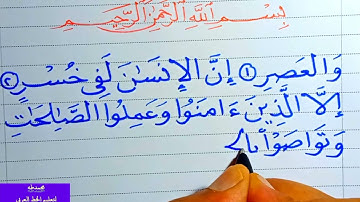 بِسْمِ اللَّهِ الرَّحْمَٰنِ الرَّحِيمِ
وَالْعَصْرِ ① إِنَّ الْإِنسَٰنَ لَفِي خُسْرٍ ②
إِلَّا الَّذِينَ ءَامَنُوا وَعَمِلُوا الصَّٰلِحَٰتِ
وَتَوَاصَوْا۟ بال